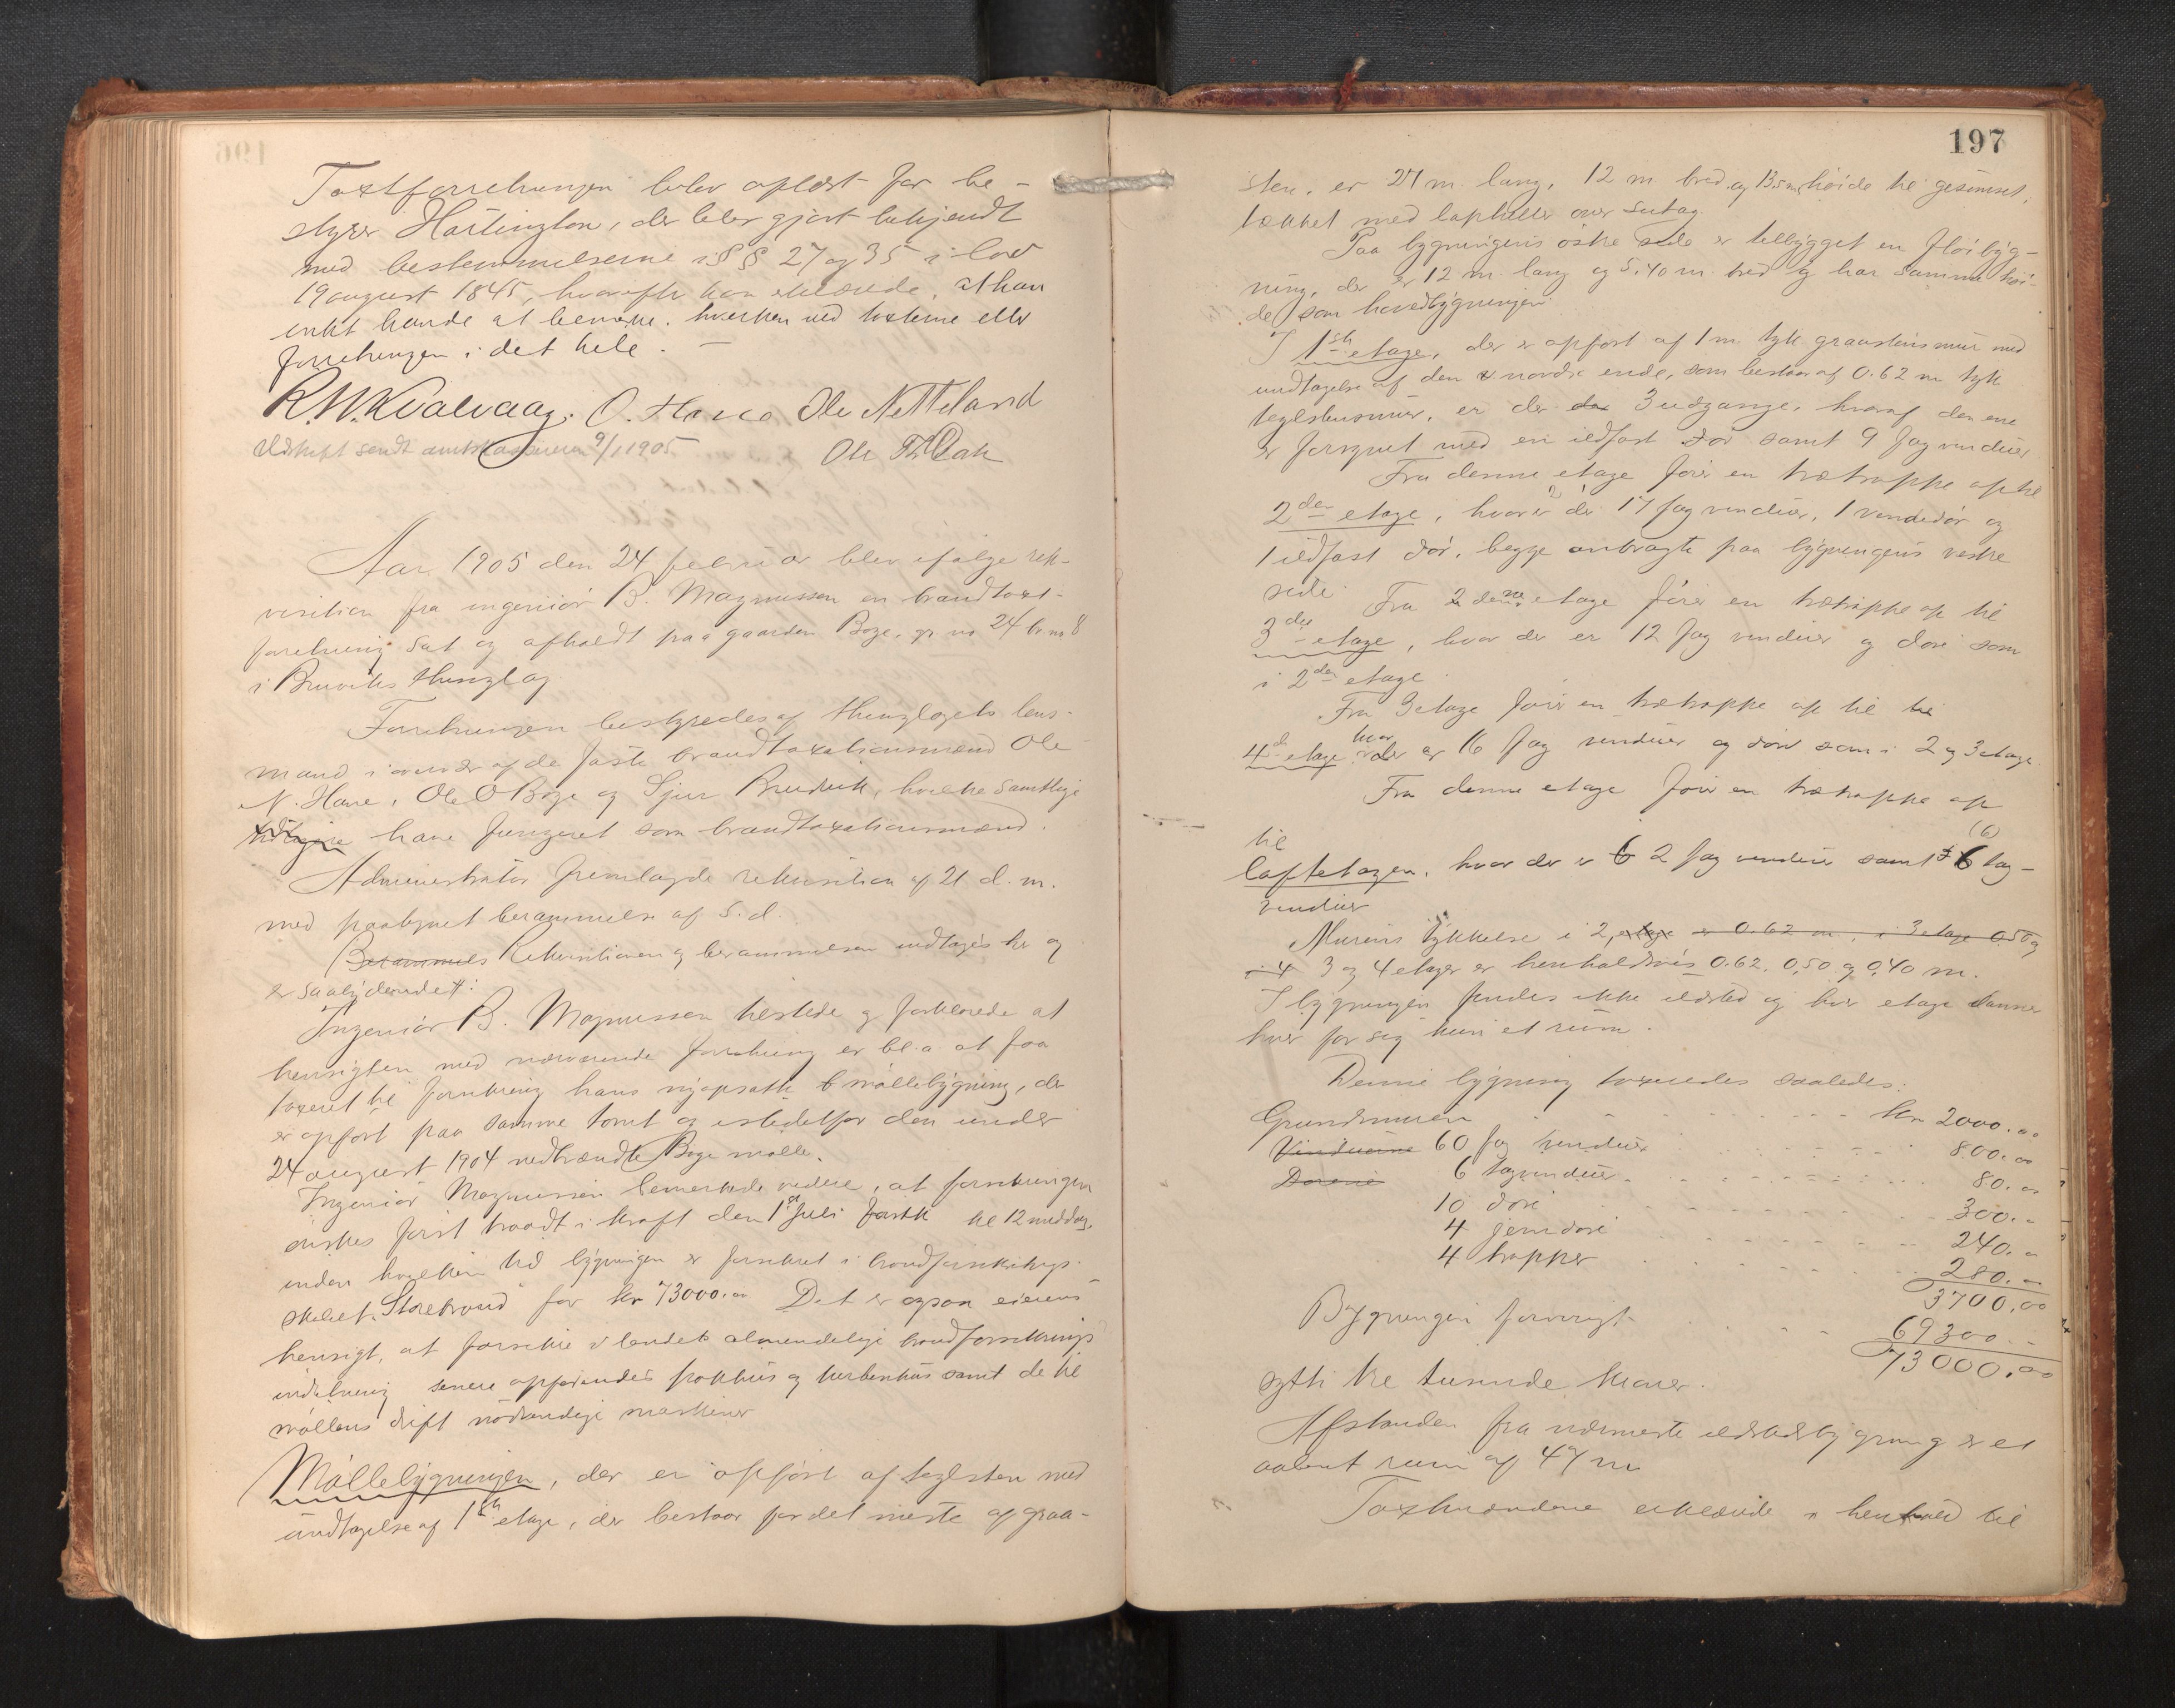 Taxtforretningen blev oplæst for be-
styrer Hartington, der blev gjort bekjendt
med bestemmelserne i §§ 27 og 35 i lov
19 august 1845, hvorefter han erklærede, at han
intet havde at bemærke hverken ved taxterne eller
forretningen i det hele. —
R. W. Kvalvaag. O. Have Ole Netteland
Udskrift sendt amtskassereren 9/1 1905
Aar 1905 den 24 februar blev ifølge rek-
visition fra ingeniør B. Magnussen en brandtaxt-
forretning sat og afholdt paa gaarden Boge, gr no 24 br no 8
i Bruviks thinglag
Forretningen bestyredes af thinglagets lens-
mand i overvær af de faste brandtaxationsmænd Ole
N. Have, Ole O Boge og Sjur Bruvik, hvilke samtlige
tidligere have fungeret som brandtaxationsmænd.
Administrator fremlagde rekvisition af 21 d. m.
med paategnet berammelse af s. d.
Berammels Rekvisitionen og berammelsen indtages her og
er saalydende #:
Ingeniør B. Magnussen tilstede og forklarede at
hensigten med nærværende forretning er bl. a. at faa
taxeret til forsikring hans nyopsatte b møllebygning, der
er opført paa samme tomt og istedetfor den under
24 august 1904 nedbrændte Boge mølle.
Ingeniør Magnussen bemærkede videre, at forsikringen
ønskes først traadt i kraft den 1st juli førstk kl 12 middag,
inden hvilken tid bygningen er forsikret i brandforsikrings-
selskabet "Storebrand" for kr 73000.00 Det er ogsaa eierens
hensigt, at forsikre i landets almindelige brandforsikrings
indretning senere opførendes pakhus og turbinhus samt de til
møllens drift nødvendige maskiner
Møllebygningen, der er opført af teglsten med
undtagelse af 1ste etage, der bestaar for det meste af graa-
197
sten, er 27 m. lang, 12 m bred og 13.5 m høide til gesimset,
tækket med tapheller over sutag
Paa bygningens østre side er tilbygget en fløibyg-
ning, der er 12 m. lang og 5.40 m. bred og har samme høi-
de som hovedbygningen.
I 1ste etage, der er opført af 1 m tyk graastensmur med
undtagelse af den nordre ende, som bestaar af 0.62 m tyk
teglstensmur, er der 3 udgange, hvoraf den ene
er forsynet med en ildfast dør samt 9 fag vinduer
Fra denne etage fører en trætrappe op til
2den etage, hvor er der 17 fag vinduer, 1 vindedør og
1 ildfast dør, begge anbragte paa bygningens vestre
side. Fra 2 denne etage fører en trætrappe op til
3die etage, hvor der er 12 fag vinduer og døre som
i 2den etage.
Fra 3 etage fører en trætrappe op til til
4de etage hvor der er 16 fag vinduer og døre som i 2 og 3 etage.
Fra denne etage fører en trætrappe op
til (6)
loftetagen, hvor der er 6 2 fag vinduer samt 6 tag-
vinduer
Murens tykkelse i 2, etage er 0.62 m, i 3 etage 0,50 og
i 4 3 og 4 etager er henholdsvis 0.62, 0,50 og 0,40 m.
I bygningen findes ikke ildsted og hver etage danner
hver for sig kun et rum.
Denne bygning taxeredes saaledes:
Grundmuren kr 2000.00
Vinduerne 60 fag vinduer 800.00
Dørene 6 tagvinduer 80.00
10 døre 300.-
4 jerndøre 240.00
4 trapper 280.00
3700.00
Bygningen forøvrigt 69300.-
73000.00
sytti tre tusinde kroner.
Afstanden fra nærmeste ildstedsbygning er et
aabent rum af 47 m
Taxtmændene erklærede i henhold til